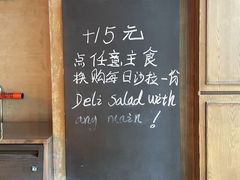 +15元
点任意主食
换购每日沙拉一份
Deli Salad with
any main!